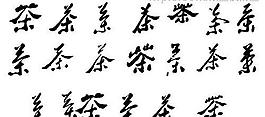 茶茶茶茶茶茶茶
茶茶茶茶茶茶茶
茶茶茶茶茶茶